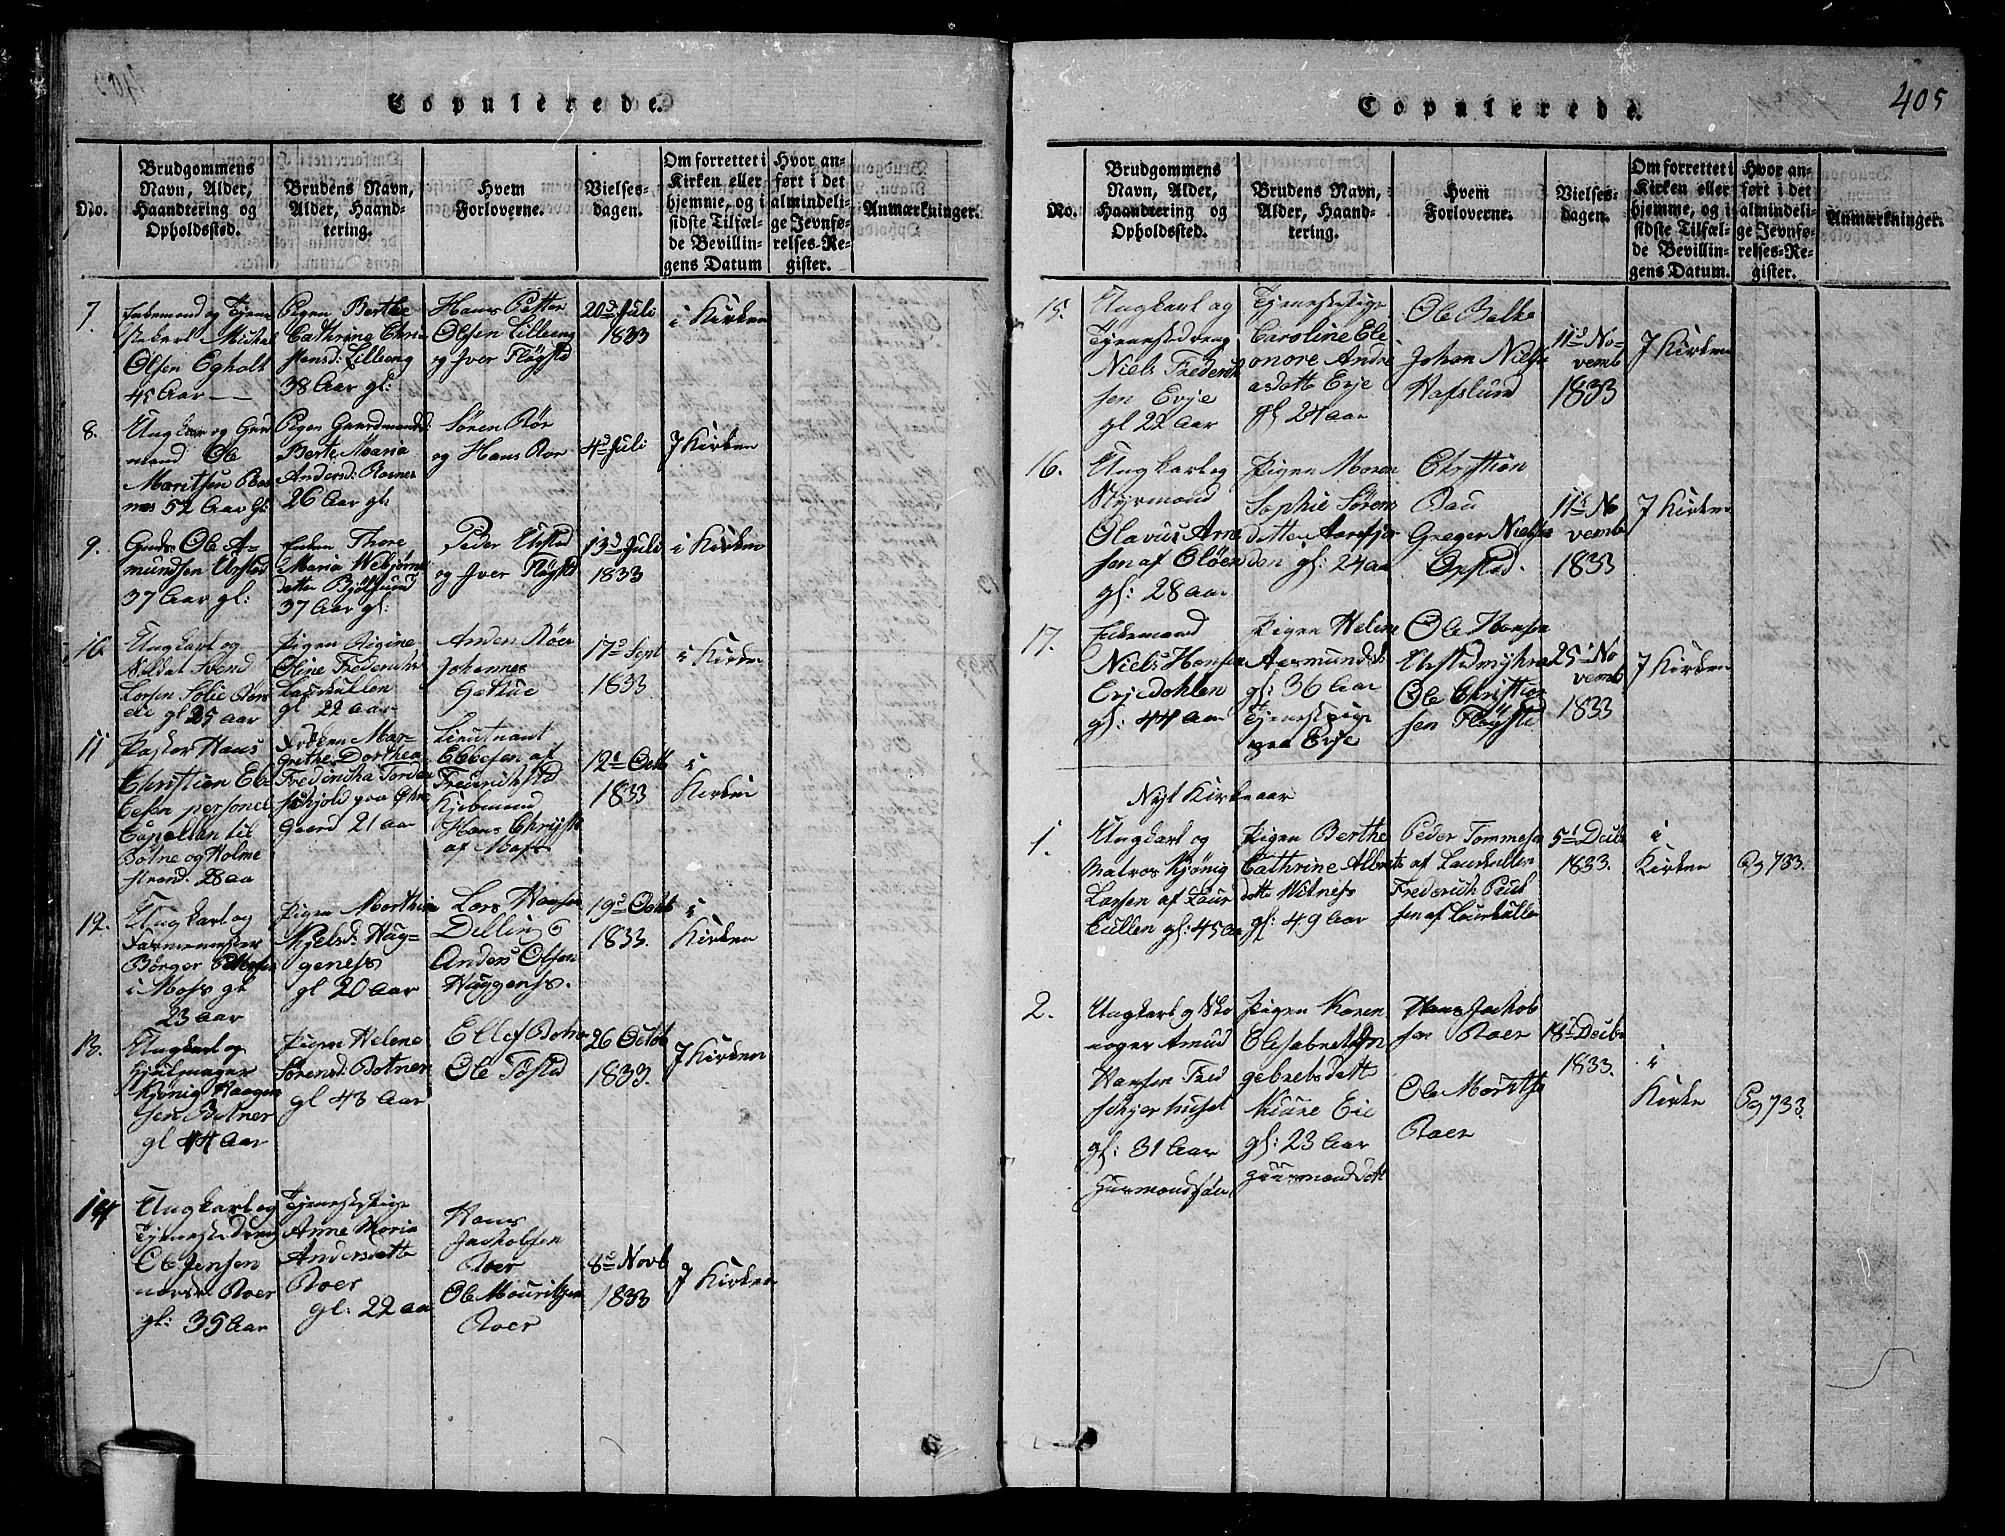 Copulerede.
No.
Brudgommens
Navn, Alder,
Haandtering og
Opholdssted.
Brudens Navn,
Alder, Haand-
tering.
Hvem
Forloverne.
Vielses-
dagen.
Om forrettet i
Kirken eller
hjemme, og i
sidste Tilfæl-
de Bevillin-
gens Datum
Hvor an-
ført i det
almindeli-
ge Jevnfø-
relses-Re-
gister.
Anmærkninger.
7.
Enkemand og Tjene
Michel
Olsen Egholt
45 Aar
Pigen Berthe
Cathrine Chri
stensd: Lilleeng
38 Aar gl:
Hans Petter
Olsen Lilleeng
og Iver Fløysted
20d Juli
1833
i Kirken
8.
Ungkar og Gaar
mand Ole
Maritsen Ros
nes 52 Aar gl:
Pigen Gaardmands
Berte Maria
Andersd: Rosnes
26 Aar gl.
Søren Roer
og Hans Roer
4d Juli
I Kirken
9.
Ole A-
mundsen Ursted
37 Aar gl:
Enken Thore
Maria Webjørns
datter
37 Aar gl:
Peder Ursted
og Iver Fløysted
13d Juli
1833
i Kirken
10
Ungkarl og
Soldat Svend
Larsen Solie
gl 25 Aar
Pigen Regine
Oline Frederichs
Laurkullen
gl 22 Aar
Anders Roer
Johannes
17d Sept
1833
i Kirken
11
Pastor Hans
Christian Eb
besen personel
Capellan til
Botne og Holme
strand. 28 aa
Frøken Mar-
grethe Dorthea
Fredericka Torden
skjold paa Øhre
Gaard 21 aa
Lieutnant
Ebbesen af
Frederichsted
Kjøbmand
Hans Chrysti
af Moss
12te Octb
1833
i
Kirken
12.
Ungkarl og
Farvemester
Børger Pettersen
i Moss gl
23 Aar
Pigen Marthine
Kjelsd: Hug-
geness
gl 20 Aar
Lars Hansen
Dilling
Anders Olsen
Huggenss.
19d Octb
1833.
i
Kirken
13.
Ungkarl og
Hjulmager
Kjønig Haagen
sen Botner
gl 44 Aar
Pigen Helene
Sørensd: Botner
gl 43 Aar
Ellef Botner
Ole Tofsted
26 Octob
1833.
I Kirken
14
Ungkarl og
Tjenestedreng
Ole Jensen
Roer
gl: 35 Aar
Tjenestepige
Anne Maria
Andersdatter
Roer
gl: 22 aa
Hans
Jachobsen
Roer
Ole Mouritzen
Roer
8d Novb
1833
I Kirken
Copulerede.
405
No.
Brudgommens
Navn, Alder,
Haandtering og
Opholdssted.
Brudens Navn,
Alder, Haand-
tering.
Hvem
Forloverne.
Vielses-
dagen.
Om forrettet i
Kirken eller
hjemme, og i
sidste Tilfæl-
de Bevillin-
gens Datum.
Hvor an-
ført i det
almindeli-
ge Jevnfø-
relses-Re-
gister.
Anmærkninger.
15.
Ungkarl og
Tjenestedreng
Niels Frederik
sen Evje
gl 22 Aar
Tjenestepige
Caroline Ele
onore Andre
asdatte Evje
gl 24 aar
Ole Balke
Johan Niels
Hafslund
11d No
vemb
1833
I Kirken
16.
Ungkarl og
Styrmand
Olavius Arne
sen af
gl: 28 Aar
Pigen Maren
Sophie Søren
datter Aarefjor
den gl: 24 aa
Christian
Rau
Greger Nielsen
Ørsted.
11te No
vemb
1833
I Kirken
17.
Enkemand
Niels Hansen
Evjedahlen
gl: 44 Aar
Pigen Helene
Aasmundsd:
gl: 36 Aar
Tjenestepige
paa Evje
Ole Hansen
Ole Christian
sen Fløysted
25d No
vemb
1833
I Kirken
Nyt Kirkeaar
1.
Ungkarl og
Matros Kjønig
Larsen af Laur
kullen gl: 45 Aa
Pigen Berthe
Cathrine Albrets
datte Witness
gl: 49 Aar
Peder Tommesen
af Laurkullen
Frederich Paul
sen af Laurkullen
5d Decbr
1833.
i
Kirken
Pg 733.
2.
Ungkarl og Sko
mager Amund
Hansen Fred
gl: 31 Aar
Huusmandssøn
Pigen Karen
Elisabeth In
gebretsdatte
Kiure Eie
gl: 23 Aar
Huusmandsdatt
Hans Jachob
sen Roer
Ole Moritse
Roer
18d Decbr
1833.
i
Kirke
Pg 733.